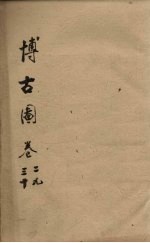 博古圖
卷
二九
三十